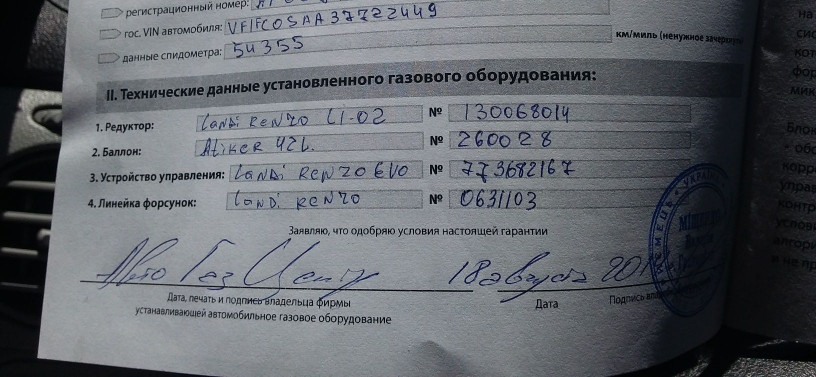 регистрационный номер:
гос. VIN автомобиля: VF1FC0SAA37722449
данные спидометра: 54355 км/миль (ненужное зачеркнуть
II. Технические данные установленного газового оборудования:
1. Редуктор: LANDI RENZO LI-02 № 130068014
2. Баллон: Atiker 42L № 260028
3. Устройство управления: LANDI RENZO EVO № 773682167
4. Линейка форсунок: LANDI RENZO № 0631103
Заявляю, что одобряю условия настоящей гарантии
Авто Газ Центр 18 августа
Дата, печать и подпись владельца фирмы Дата Подпись
устанавливающей автомобильное газовое оборудование